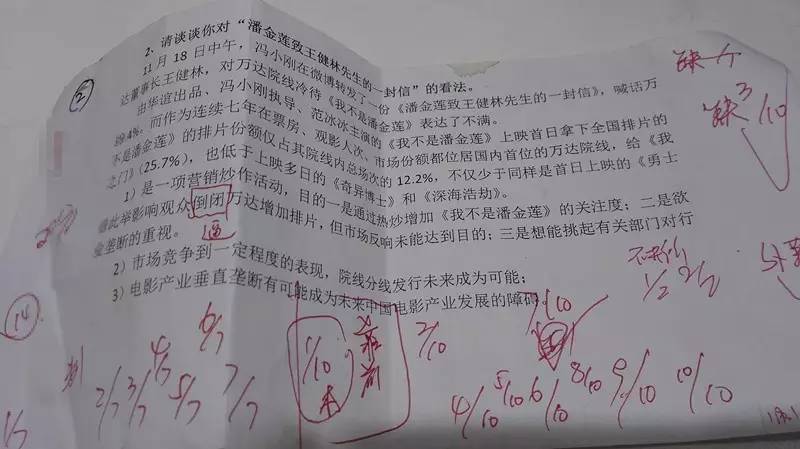 2、请谈谈你对“潘金莲致王健林先生的一封信”的看法。
11月18日中午，冯小刚在微博转发了一份《潘金莲致王健林先生的一封信》，喊话万
达董事长王健林，对万达院线冷待《我不是潘金莲》表达了不满。
由华谊出品、冯小刚执导、范冰冰主演的《我不是潘金莲》上映首日拿下全国排片的
39.4%。而作为连续七年在票房、观影人次、市场份额都位居国内首位的万达院线，给《我
不是潘金莲》的排片份额仅占其院线内总场次的12.2%，不仅少于同样是首日上映的《勇士
之门》（25.7%），也低于上映多日的《奇异博士》和《深海浩劫》。
1）是一项营销炒作活动，目的一是通过热炒增加《我不是潘金莲》的关注度；二是欲
借此举影响观众倒闭万达增加排片，但市场反响未能达到目的；三是想能挑起有关部门对行
业垄断的重视。
逼
2）市场竞争到一定程度的表现，院线分线发行未来成为可能；
3）电影产业垂直垄断有可能成为未来中国电影产业发展的障碍
2
缺
缺3/10
1/2 2/2
14
6/7
4/7
2/7 3/7 5/7 7/7
1/10
2/10
4/10 5/10 6/10 8/10 9/10 10/10
1/7